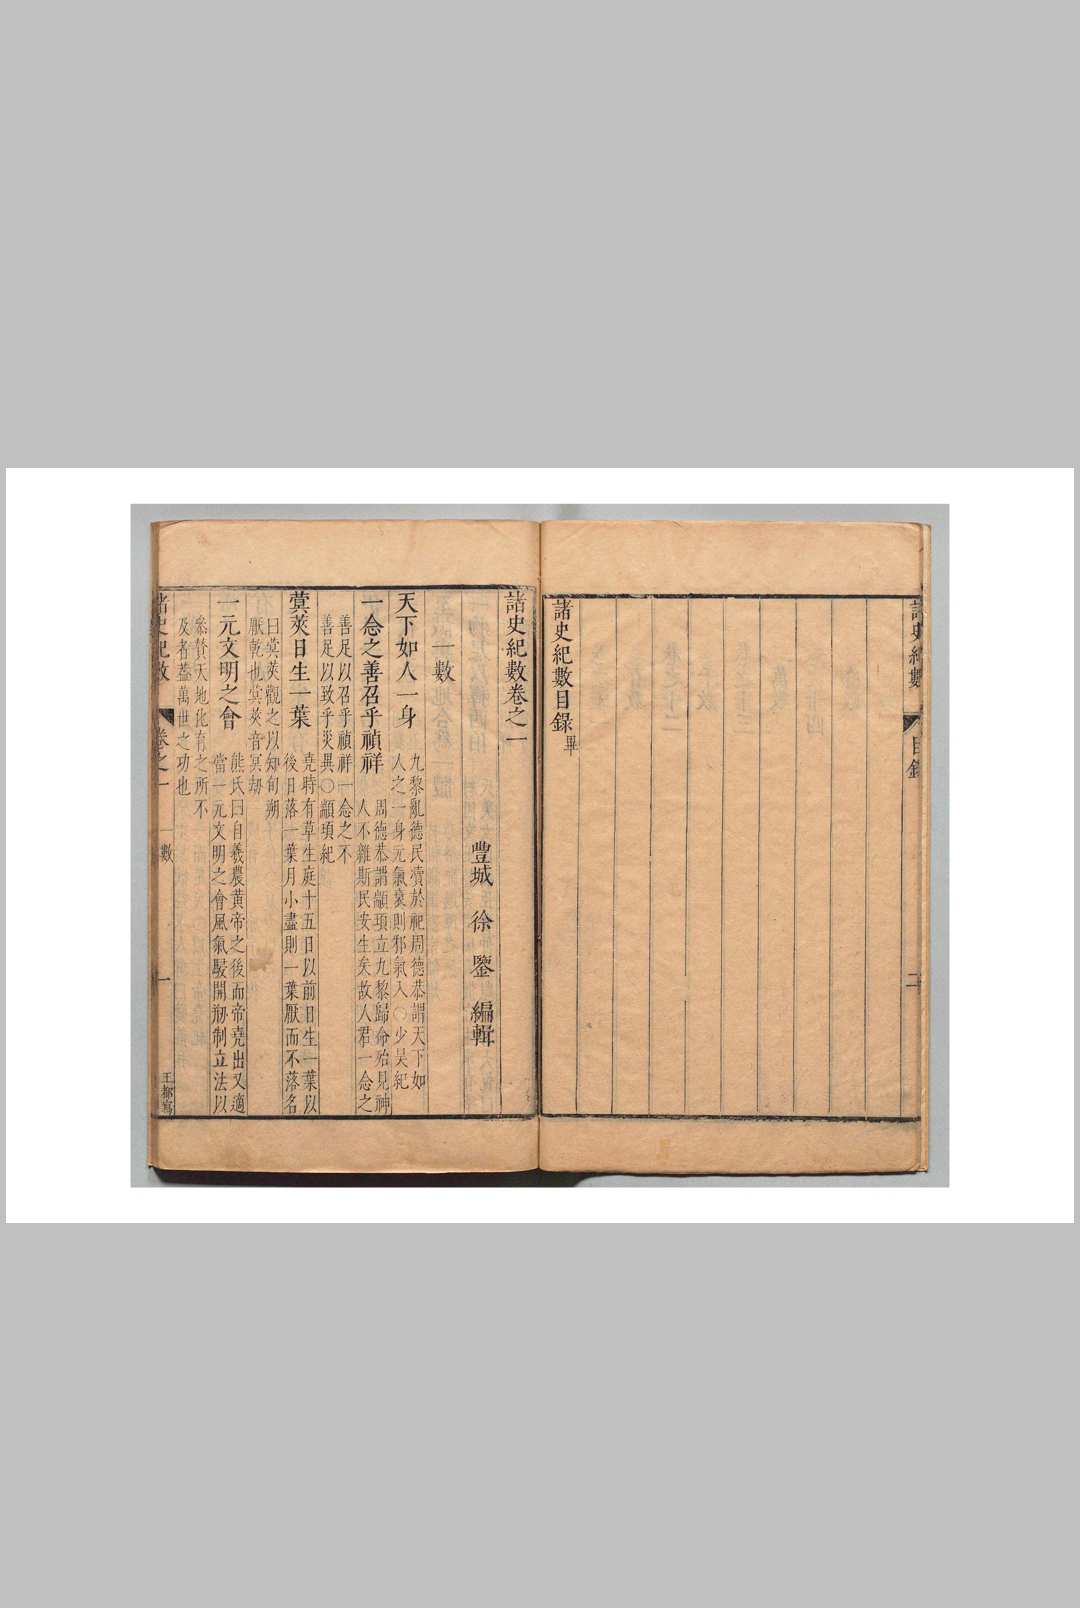 諸史紀數
目錄
二
諸史紀數目錄畢
諸史紀數卷之一
豐城 徐鑒 編輯
一數
天下如人一身
九黎亂德民瀆於祀周德恭謂天下如
人之一身元氣衰則邪氣入○少昊紀
一念之善召乎禎祥
周德恭謂顓頊立九黎歸命殆見神
人不雜斯民安生矣故人君一念之
善足以召乎禎祥一念之不
善足以致乎災異○顓頊紀
蓂莢日生一葉
堯時有草生庭十五日以前日生一葉以
後日落一葉月小盡則一葉厭而不落名
曰蓂莢觀之以知旬朔
厭乾也蓂莢音冥劫
一元文明之會
熊氏曰自羲農黃帝之後而帝堯出又適
當一元文明之會風氣駸開剏制立法以
叅贊天地化育之所不
及者蓋萬世之功也
諸史紀數
卷之一
一數
一
王都寫